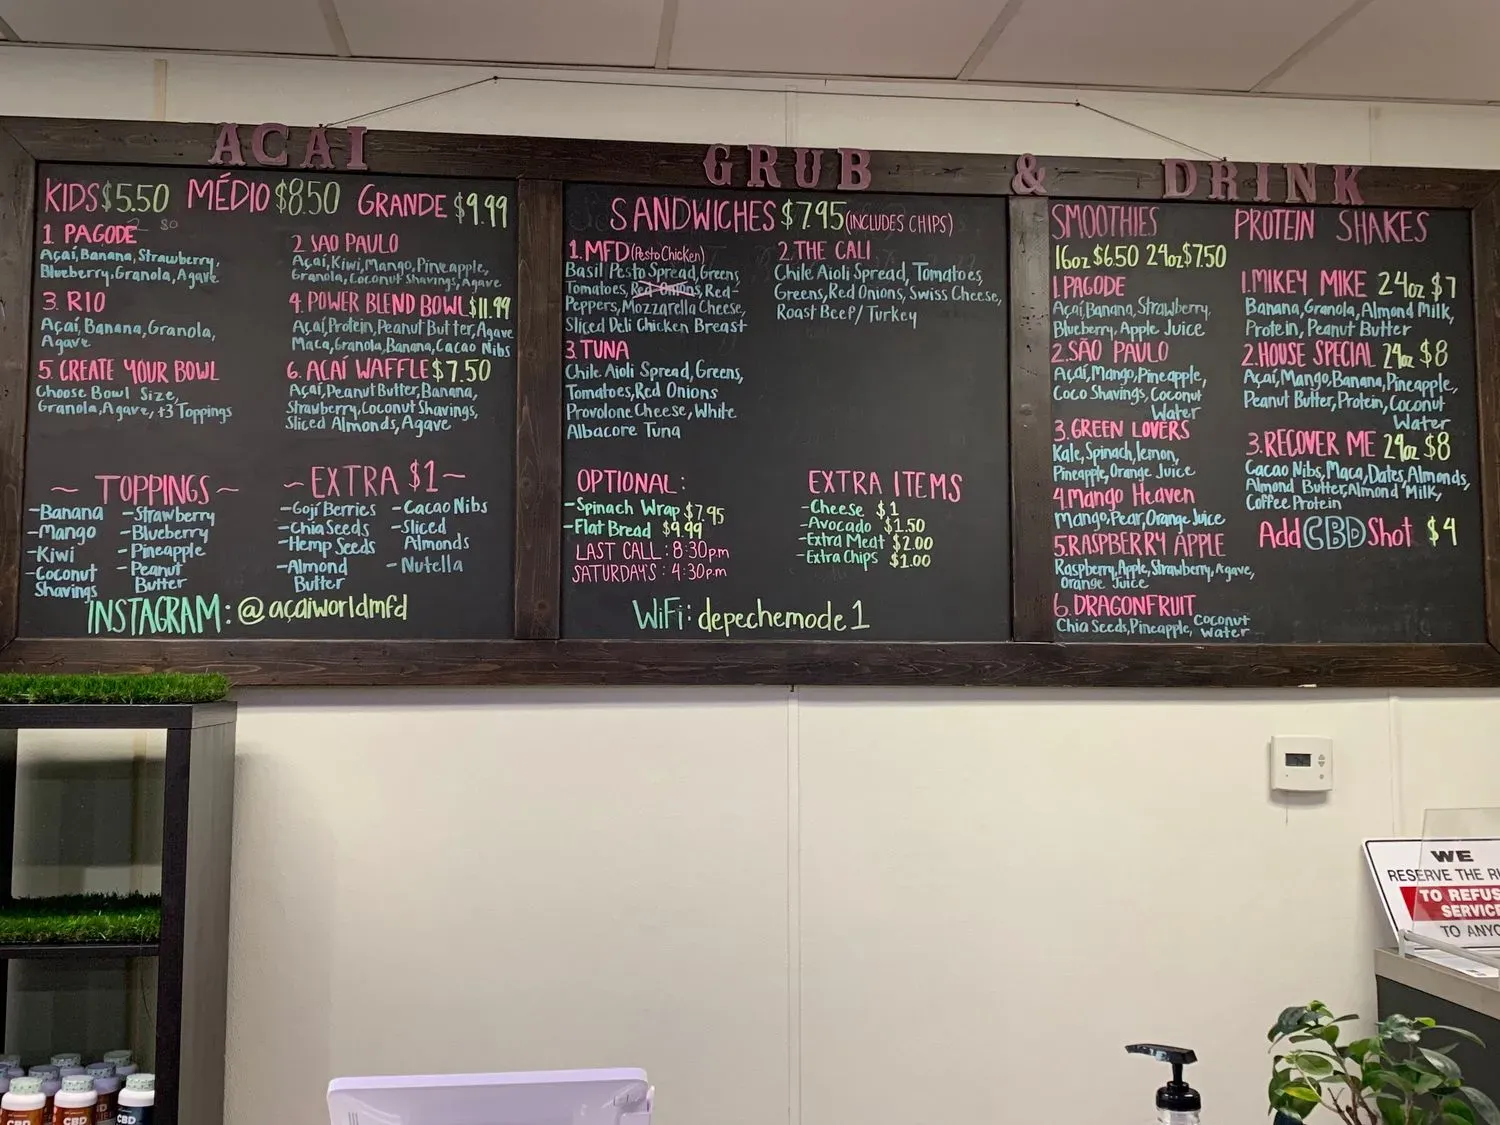 AÇAÍ
GRUB & DRINK
KIDS $5.50 MÉDIO $8.50 GRANDE $9.99
1 PAGODE
Açaí, Banana, Strawberry,
Blueberry, Granola, Agave
2 SAO PAULO
Açaí, Kiwi, Mango, Pineapple,
Granola, Coconut Shavings, Agave
3. RIO
Açaí, Banana, Granola,
Agave
4. POWER BLEND BOWL $11.99
Açaí, Protein, Peanut Butter, Agave
Maca, Granola, Banana, Cacao Nibs
5. CREATE YOUR BOWL
Choose Bowl Size,
Granola, Agave, +3 Toppings
6. AÇAÍ WAFFLE $7.50
Açaí, Peanut Butter, Banana,
Strawberry, Coconut Shavings,
Sliced Almonds, Agave
~ TOPPINGS ~
-Banana
-Mango
-Kiwi
-Coconut
Shavings
-Strawberry
-Blueberry
-Pineapple
-Peanut
Butter
~EXTRA $1~
-Goji Berries
-Chia Seeds
-Hemp Seeds
-Almond
Butter
-Cacao Nibs
-Sliced
Almonds
-Nutella
INSTAGRAM: @açaiworldmfd
SANDWICHES $7.95 (INCLUDES CHIPS)
1. MFD (Pesto Chicken)
Basil Pesto Spread, Greens
Tomatoes, Red Onions, Red-
Peppers, Mozzarella Cheese,
Sliced Deli Chicken Breast
2. THE CALI
Chile Aioli Spread, Tomatoes,
Greens, Red Onions, Swiss Cheese,
Roast Beef/Turkey
3. TUNA
Chile Aioli Spread, Greens,
Tomatoes, Red Onions
Provolone Cheese, White
Albacore Tuna
OPTIONAL:
-Spinach Wrap $7.95
-Flat Bread $9.99
LAST CALL: 8:30pm
SATURDAY'S: 4:30pm
EXTRA ITEMS
-Cheese $1
-Avocado $1.50
-Extra Meat $2.00
-Extra Chips $1.00
WiFi: depechemode1
SMOOTHIES
16oz $6.50 24oz $7.50
1. PAGODE
Açaí, Banana, Strawberry,
Blueberry, Apple Juice
2. SÃO PAULO
Açaí, Mango, Pineapple,
Coco Shavings, Coconut
Water
3. GREEN LOVERS
Kale, Spinach, lemon,
Pineapple, Orange Juice
4. Mango Heaven
Mango, Pear, Orange Juice
5. RASPBERRY APPLE
Raspberry, Apple, Strawberry, Agave,
Orange Juice
6. DRAGONFRUIT
Chia Seeds, Pineapple, Coconut
Water
PROTEIN SHAKES
1. MIKEY MIKE 24oz $7
Banana, Granola, Almond Milk,
Protein, Peanut Butter
2. HOUSE SPECIAL 24oz $8
Açaí, Mango, Banana, Pineapple,
Peanut Butter, Protein, Coconut
Water
3. RECOVER ME 24oz $8
Cacao Nibs, Maca, Dates, Almonds,
Almond Butter, Almond Milk,
Coffee Protein
Add CBD Shot $4
WE
RESERVE THE
TO REFUS
SERVICE
TO ANYO
CBD
CBD
CBD